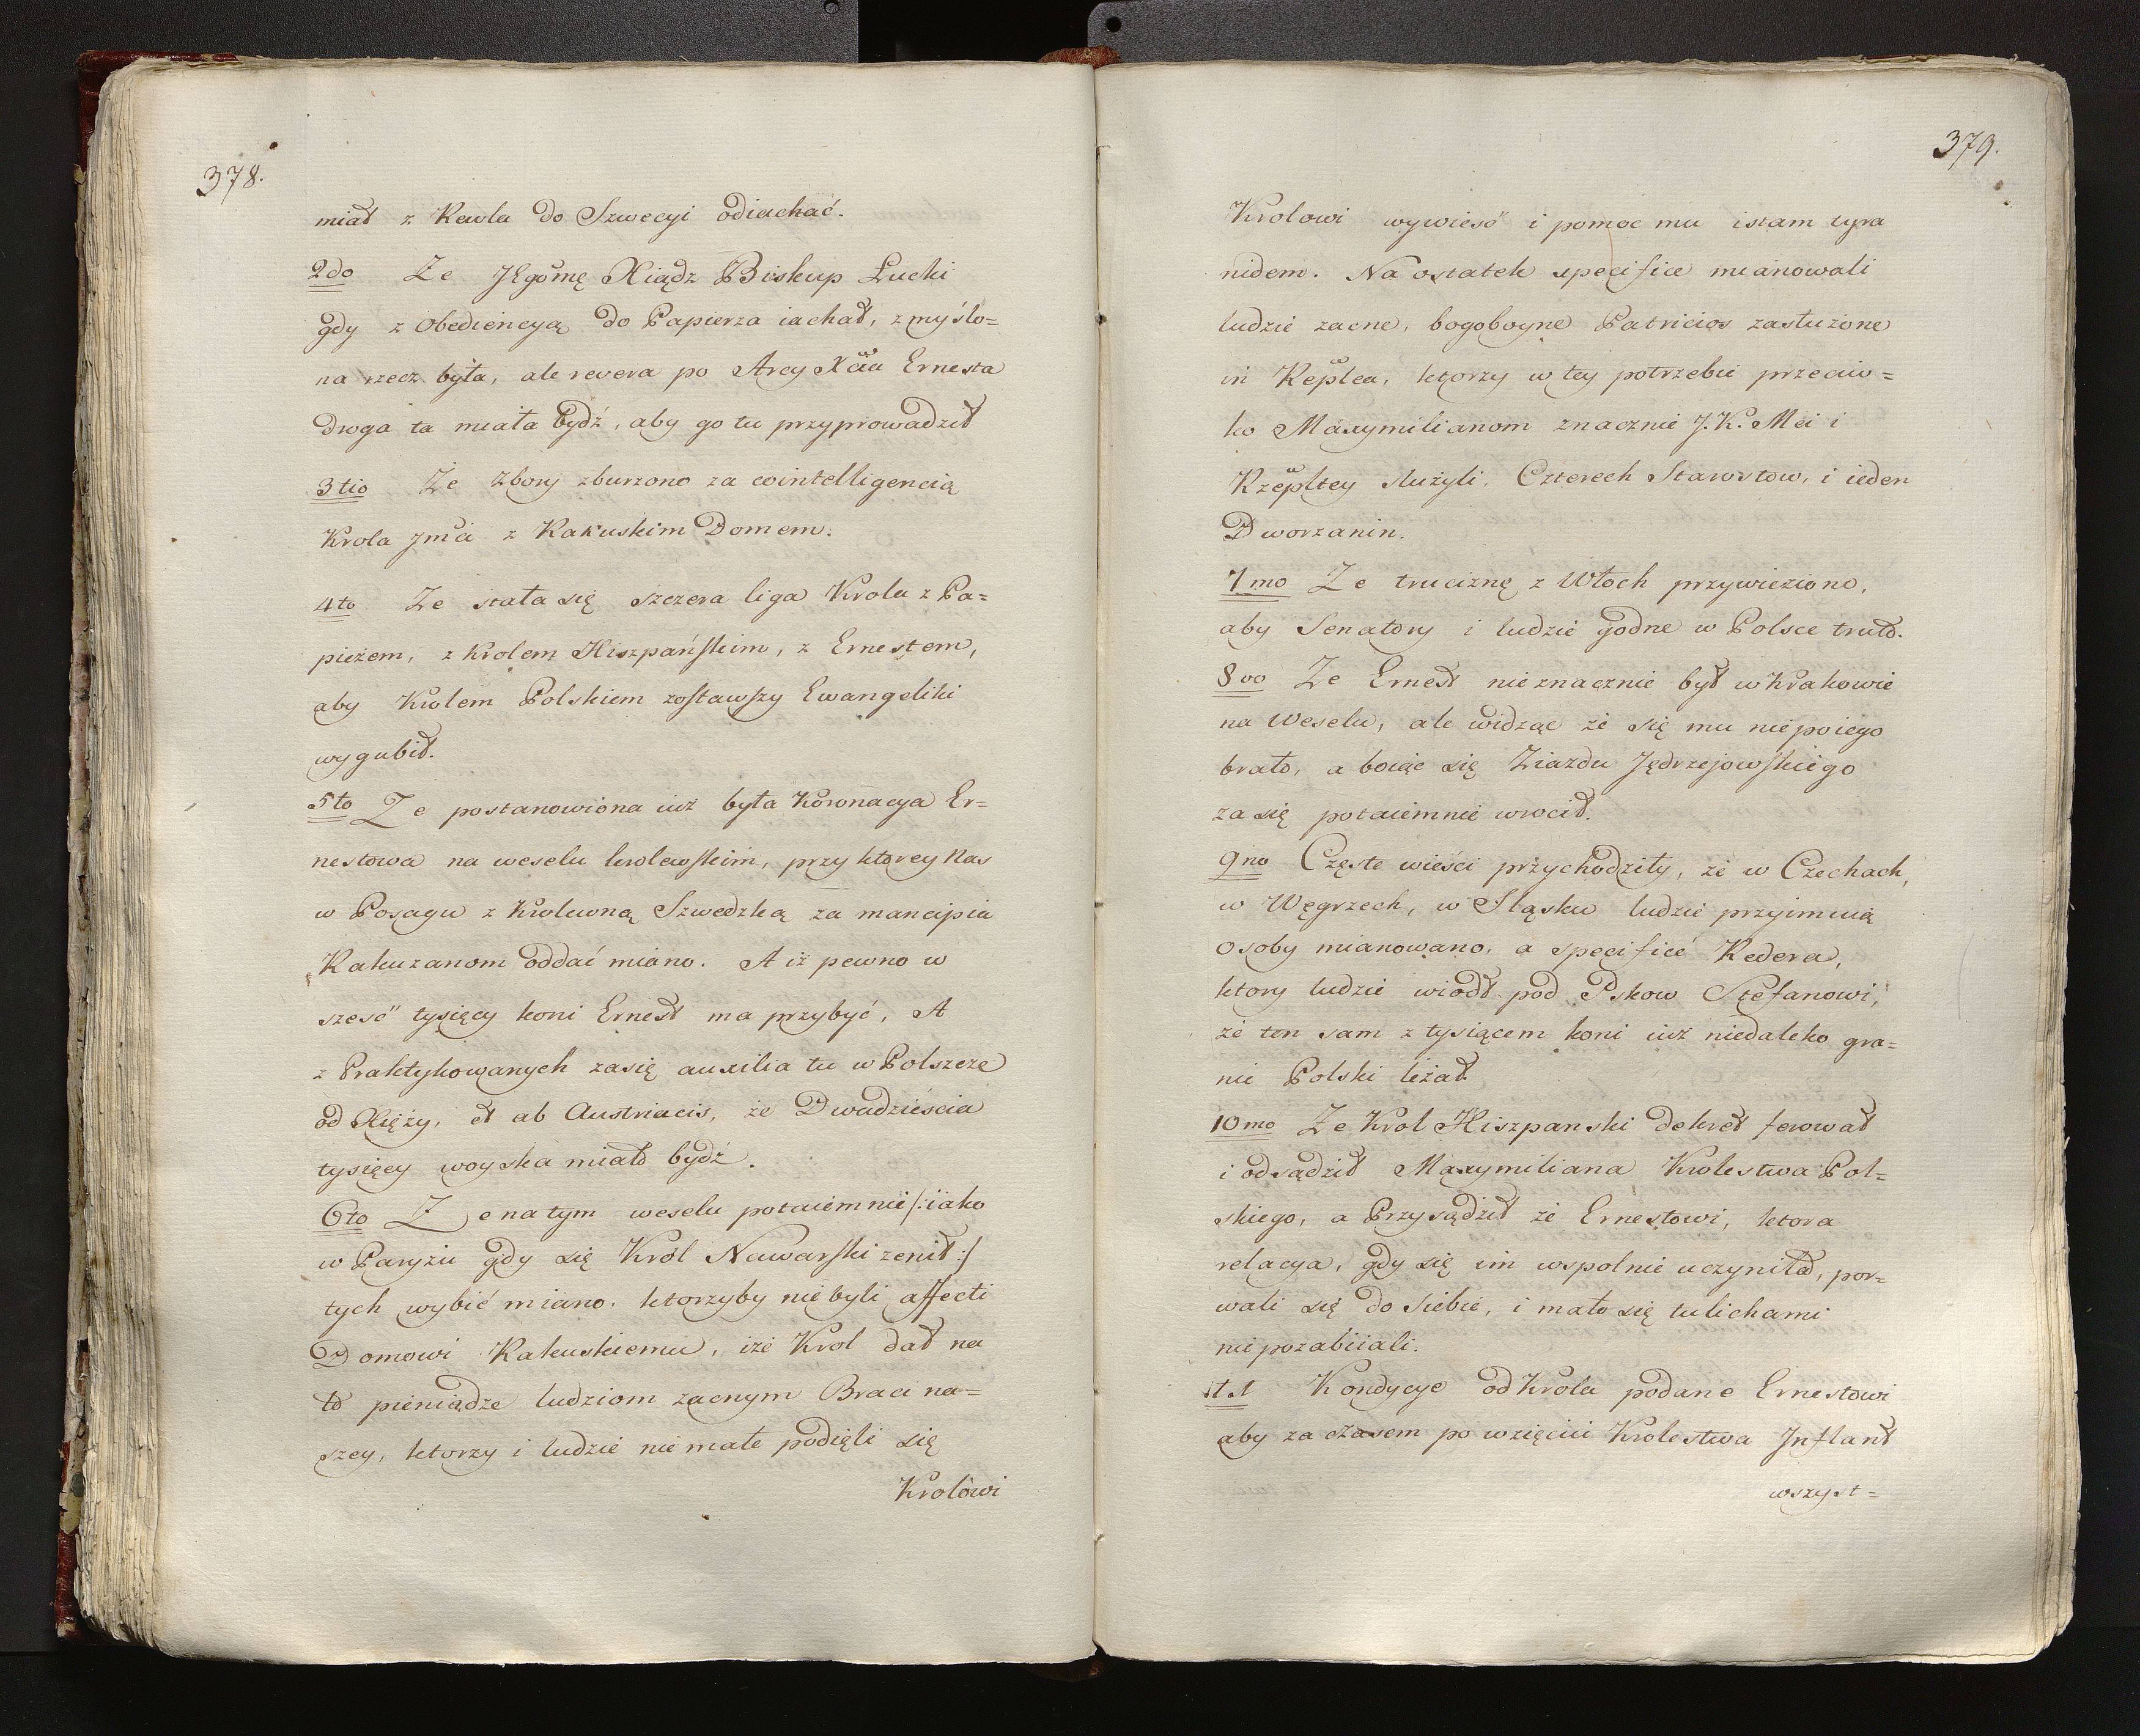 378.
miał z Rewla do Szwecyi odiachać.
2do Ze JEgomę Xiądz Biskup Łucki
gdy z Obediencyą do Papierza iachał, zmyślo=
na rzecz była, ale revera po Arcy Xcia Ernesta
droga ta miała bydź, aby go tu przyprowadził
3tio Że Zbory zburzono za cointelligencią
Krola Jmći z Rakuskim Domem.
4to Ze stała się szczera liga Krola z Pa=
pieżem, z Krolem Hiszpańskim, z Ernestem,
aby Krolem Polskiem zostawszy Ewangeliki
wygubił.
5to Ze postanowiona iuż była Koronacya Er=
nestowa na weselu krolewskim, przy ktorey Nas
w Posagu z Krolewną Szwedzką za mancipia
Rakuzanom oddać miano. A iż pewno w
sześć tysięcy koni Ernest ma przybyć, A
z Praktykowanych zasię auxilia tu w Polszcze
od Xięży, et ab Austriacis, że Dwadzieścia
tysięcy woyska miało bydź.
6to Ze na tym weselu potaiemnie /: iako
w Paryżu gdy się Krol Nawarski zenił :/
tych wybić miano, ktorzyby niebyli affecti
Domowi Rakuskiemu, iże Krol dał na
to pieniądze ludziom zacnym Braci na=
szey, ktorzy i ludzie nie małe podięli się
Krolowi
379.
Krolowi wywieść i pomoc mu istam tyra
nidem. Na ostatek specifice mianowali
ludzie zacne, bogoboyne Patricios zasłużone
in Replca, ktorzy w tey potrzebie przeciw=
ko Maxymilianom znacznie J. K. Mci i
Rzepltey służyli. Czterech Starostow, i ieden
Dworzanin.
7mo Ze truciznę z Włoch przywieziono,
aby Senatory i ludzie godne w Polsce truto.
8vo Ze Ernest nieznacznie był w Krakowie
na Weselu, ale widząc że się mu niepoiego
brało, a boiąc się Ziazdu Jędrzejowskiego
zasię potaiemnie wrocił.
9no Częste wieści przychodziły, że w Czechach,
w Węgrzech, w Sląsku ludzie przyimuią
osoby mianowano, a specifice Redera,
ktory ludzie wiodł pod Pskow Stefanowi,
że ten sam z tysiącem koni iuż niedaleko gra=
nic Polski leżał.
10mo Ze Krol Hiszpanski dekret ferował
i odsądził Maxymiliana Krolestwa Pol=
skiego, a Przysądził że Ernestowi, ktora
relacya, gdy się im wspolnie uczyniła, por=
wali się do siebie, i mało się tulichami
nie pozabiiali.
11. Kondycye od Krola podane Ernestowi
aby za czasem po wzięciu Krolestwa Inflant
wszyst=